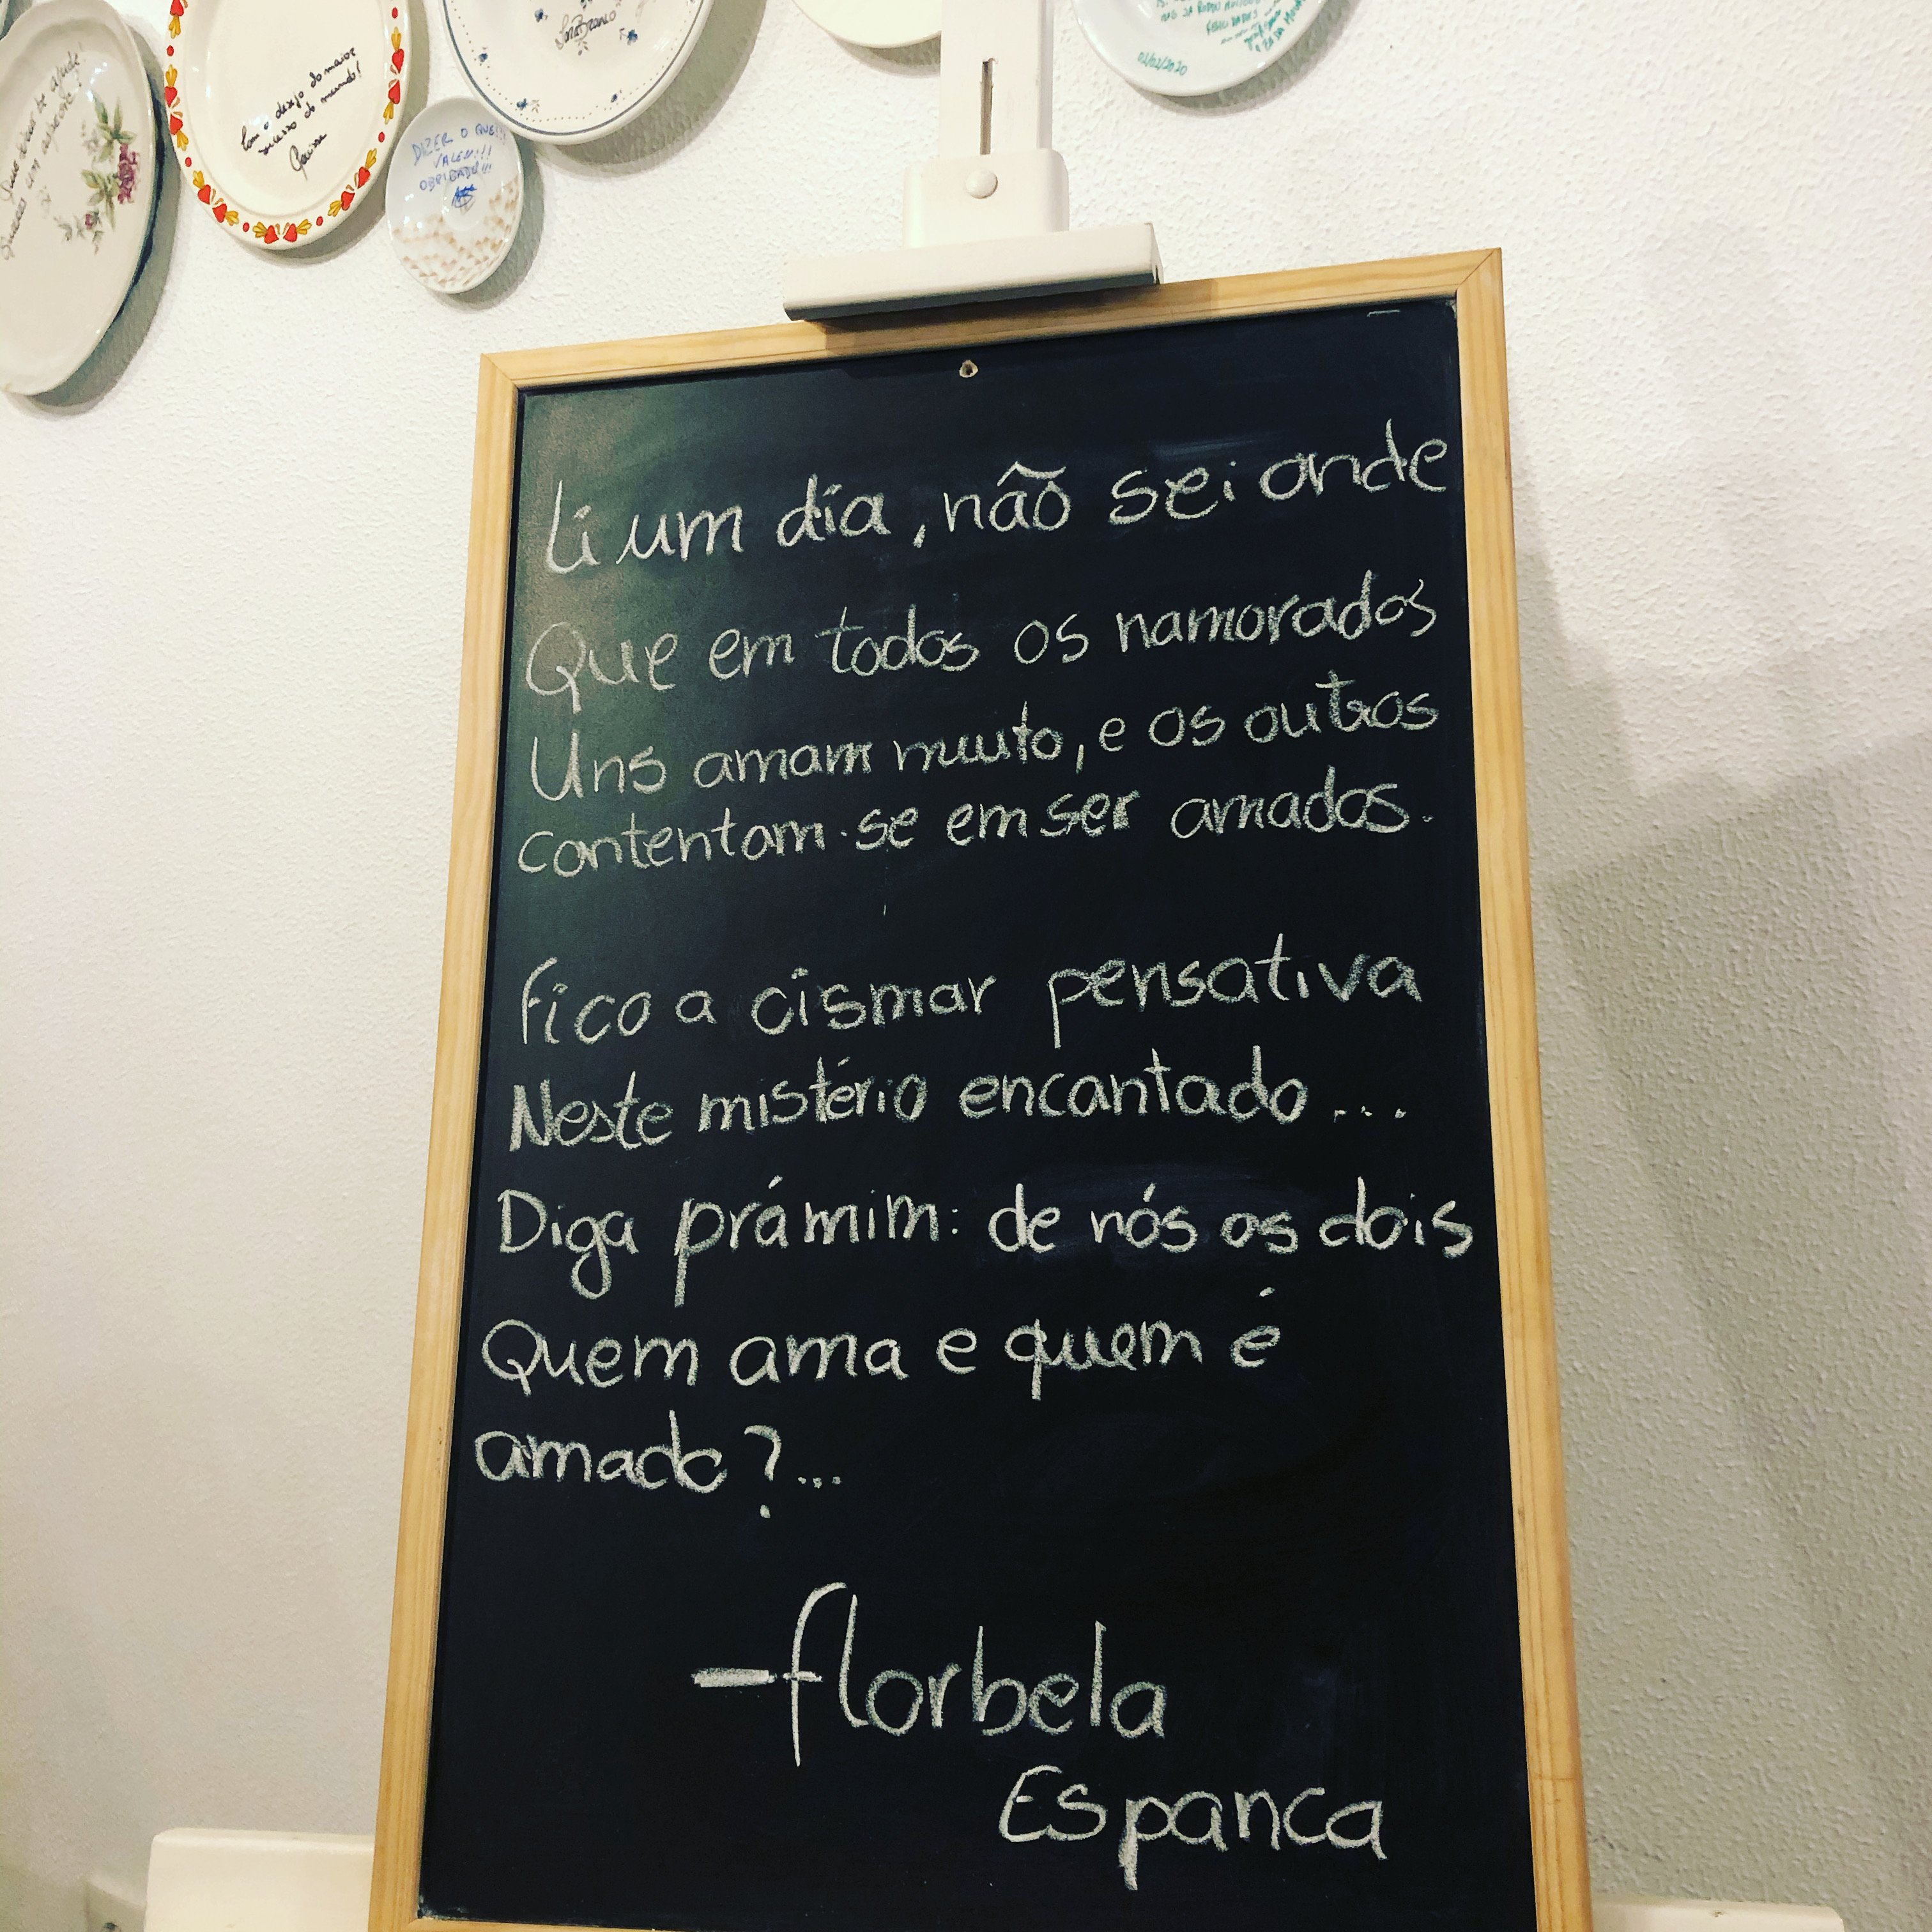 Com o desejo do maior
sucesso do mundo!
DIZER O QUE!!!
VALEU!!!
OBRIGADO!!!
02/02/2020
Li um dia, não sei onde
Que em todos os namorados
Uns amam muito, e os outros
contentam-se em ser amados.
Fico a cismar pensativa
Neste mistério encantado...
Diga prá mim: de nós os dois
Quem ama e quem é
amado?...
-florbela
Espanca